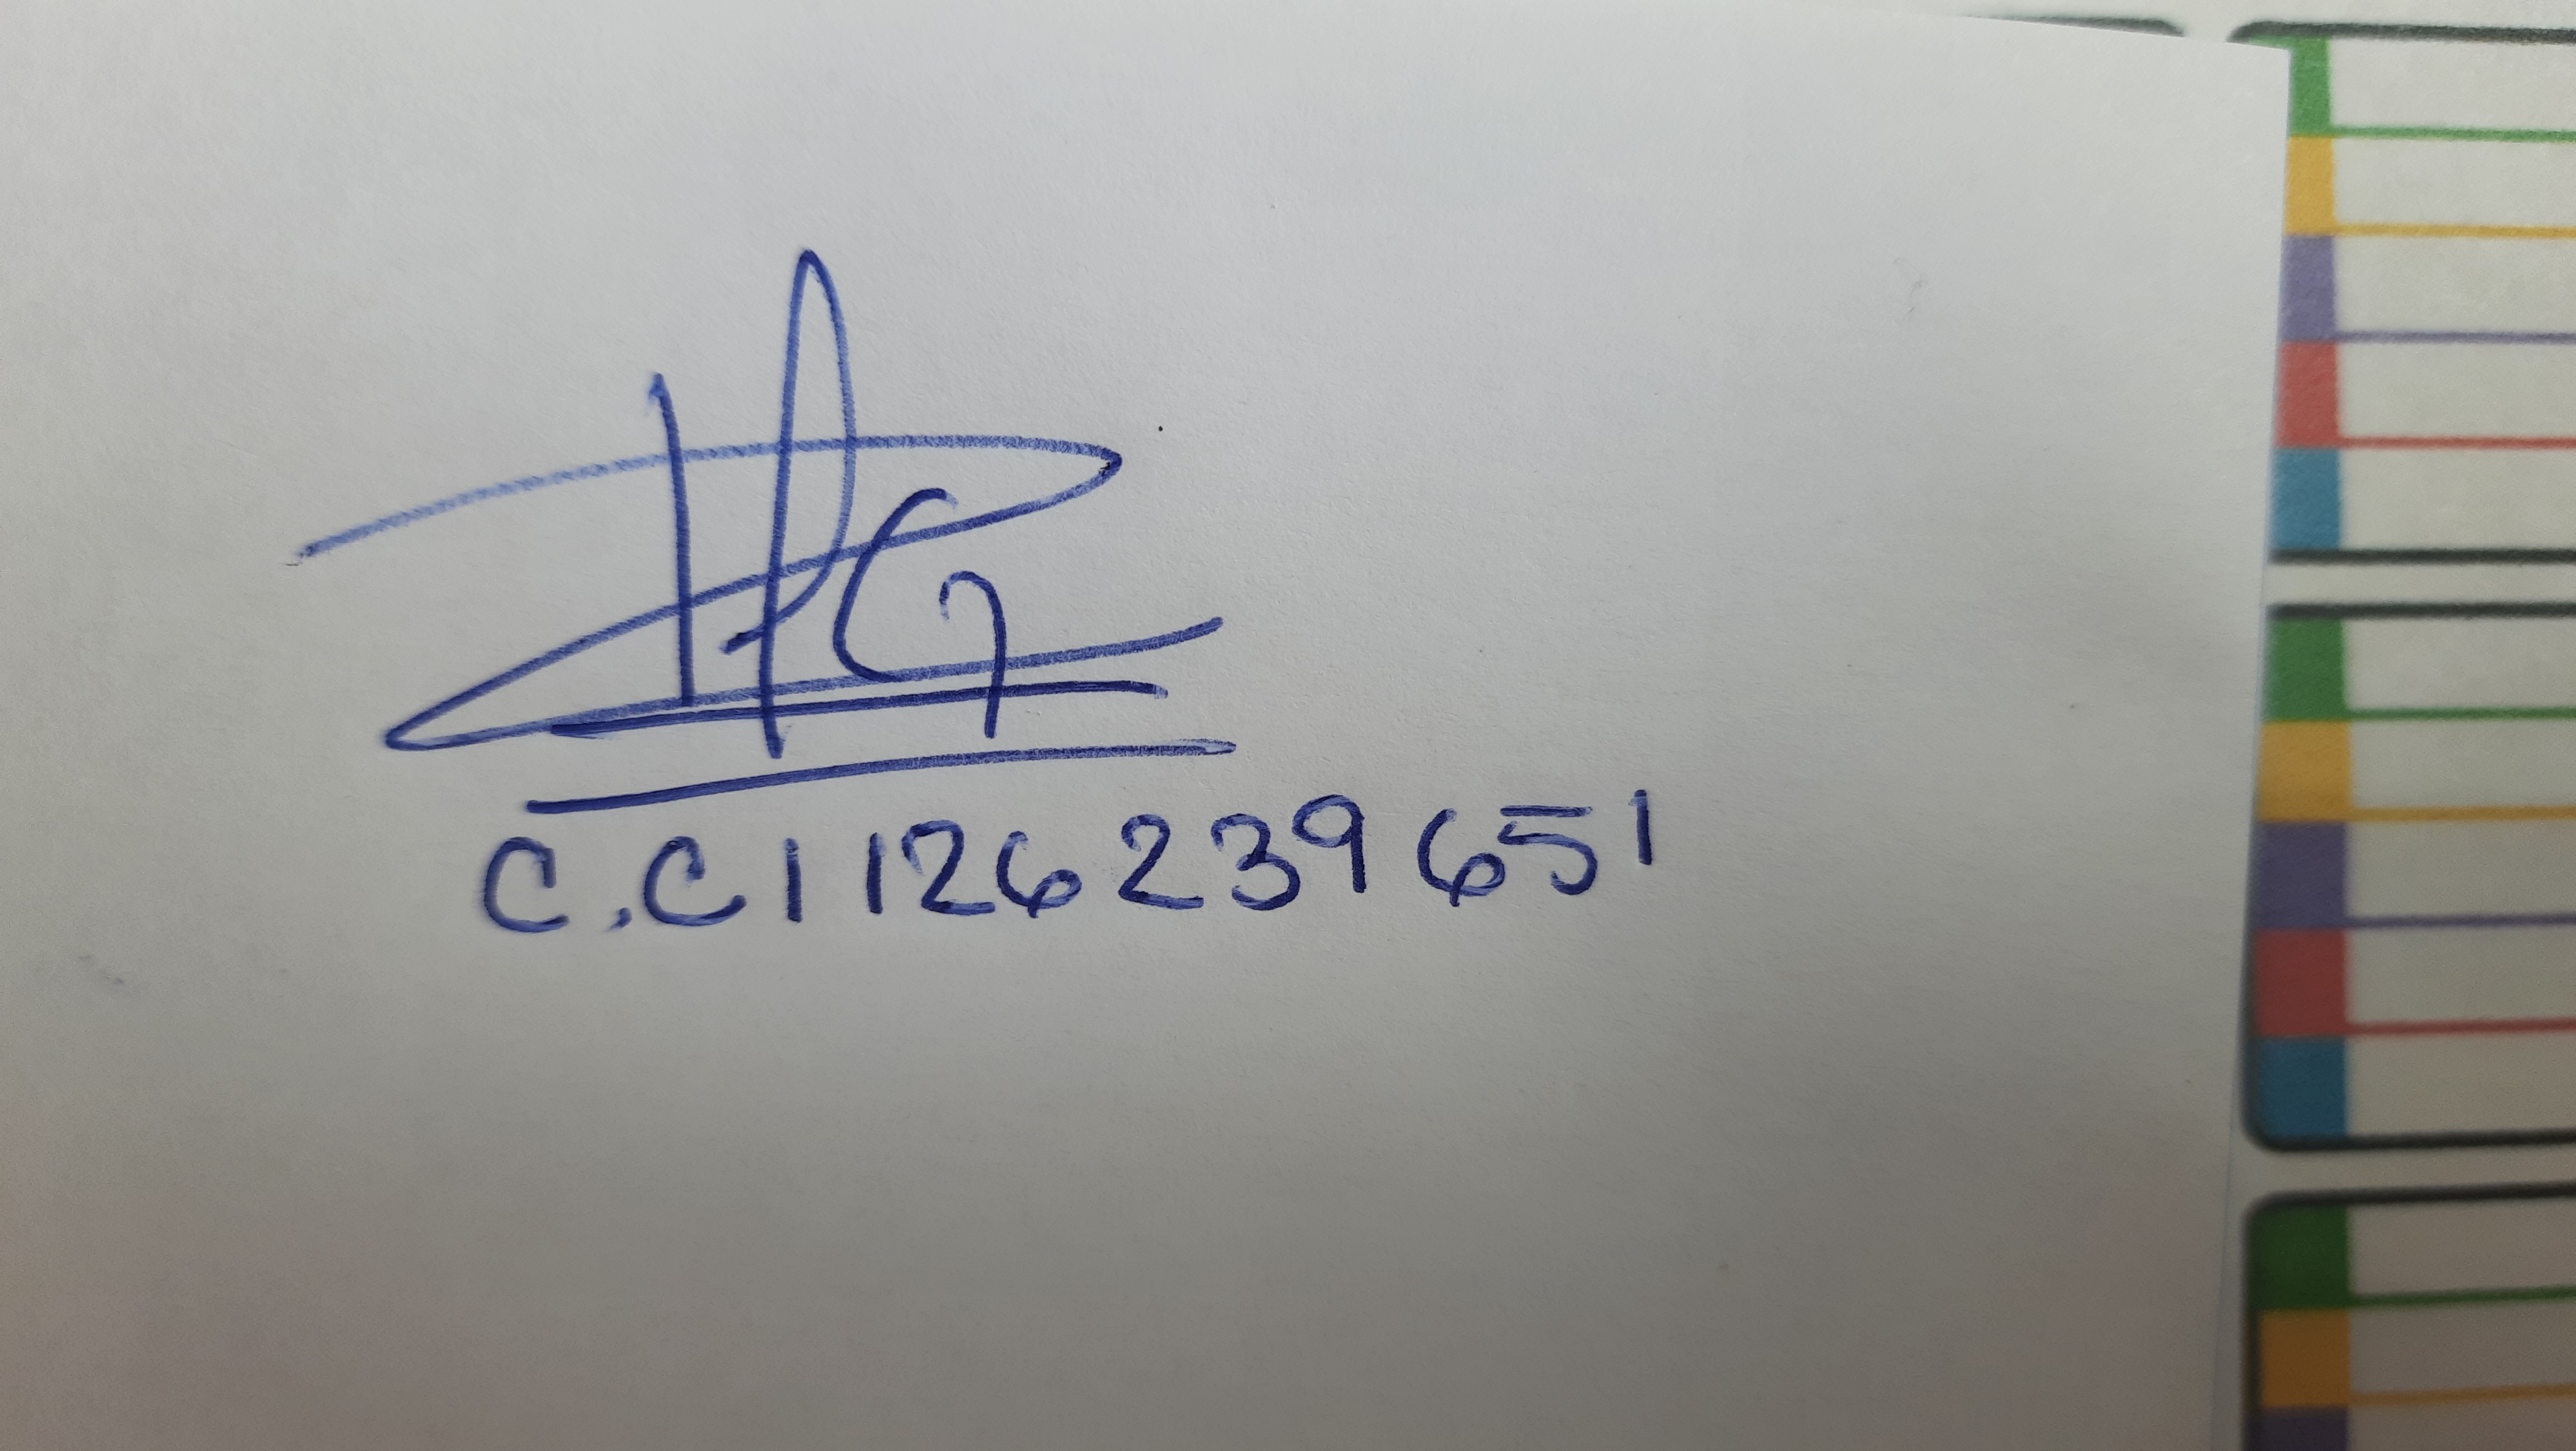 C.C 1126 239 651